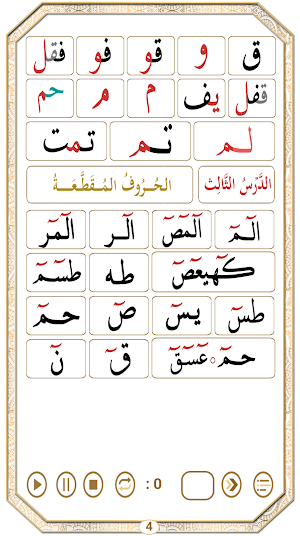 ق و قو فو فقل
قفل يف م م حم
لم تم تمت
الدَّرْسُ الثَّالِث الحُرُوفُ المُقَطَّعَةُ
الٓمٓ الٓمٓصٓ الٓر الٓمٓر
كٓهٰيٰعٓصٓ طه طسٓمٓ
طسٓ يسٓ صٓ حمٓ
حمٓ ۝ عٓسٓقٓ قٓ نٓ
: 0
4